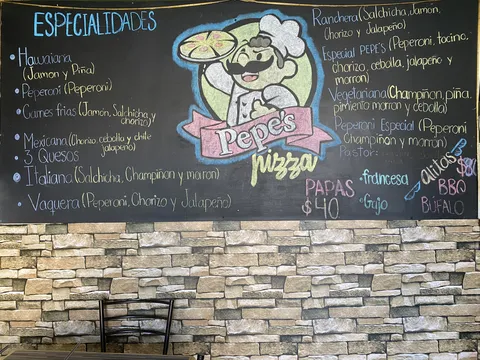 ESPECIALIDADES
• Hawaiana
(Jamon y Piña)
• Peperoni (Peperoni)
• Carnes frias (Jamón, Salchicha y
chorizo)
• Mexicana (Chorizo, cebolla y chile
jalapeño)
• 3 Quesos
• Italiana (Salchicha, Champiñon y morron)
• Vaquera (Peperoni, Chorizo y Jalapeño)
Pepe's
pizza
Ranchera (Salchicha, Jamon,
chorizo y Jalapeño)
Especial PEPE'S (Peperoni, tocino,
chorizo, cebolla, jalapeño y
morron)
Vegetariana (Champiñon, piña,
pimiento morron y cebolla)
Peperoni Especial (Peperoni
Champiñon y morrón)
Pastor
PAPAS
$40
• francesa
• Gajo
alitas
BBQ
BUFALO